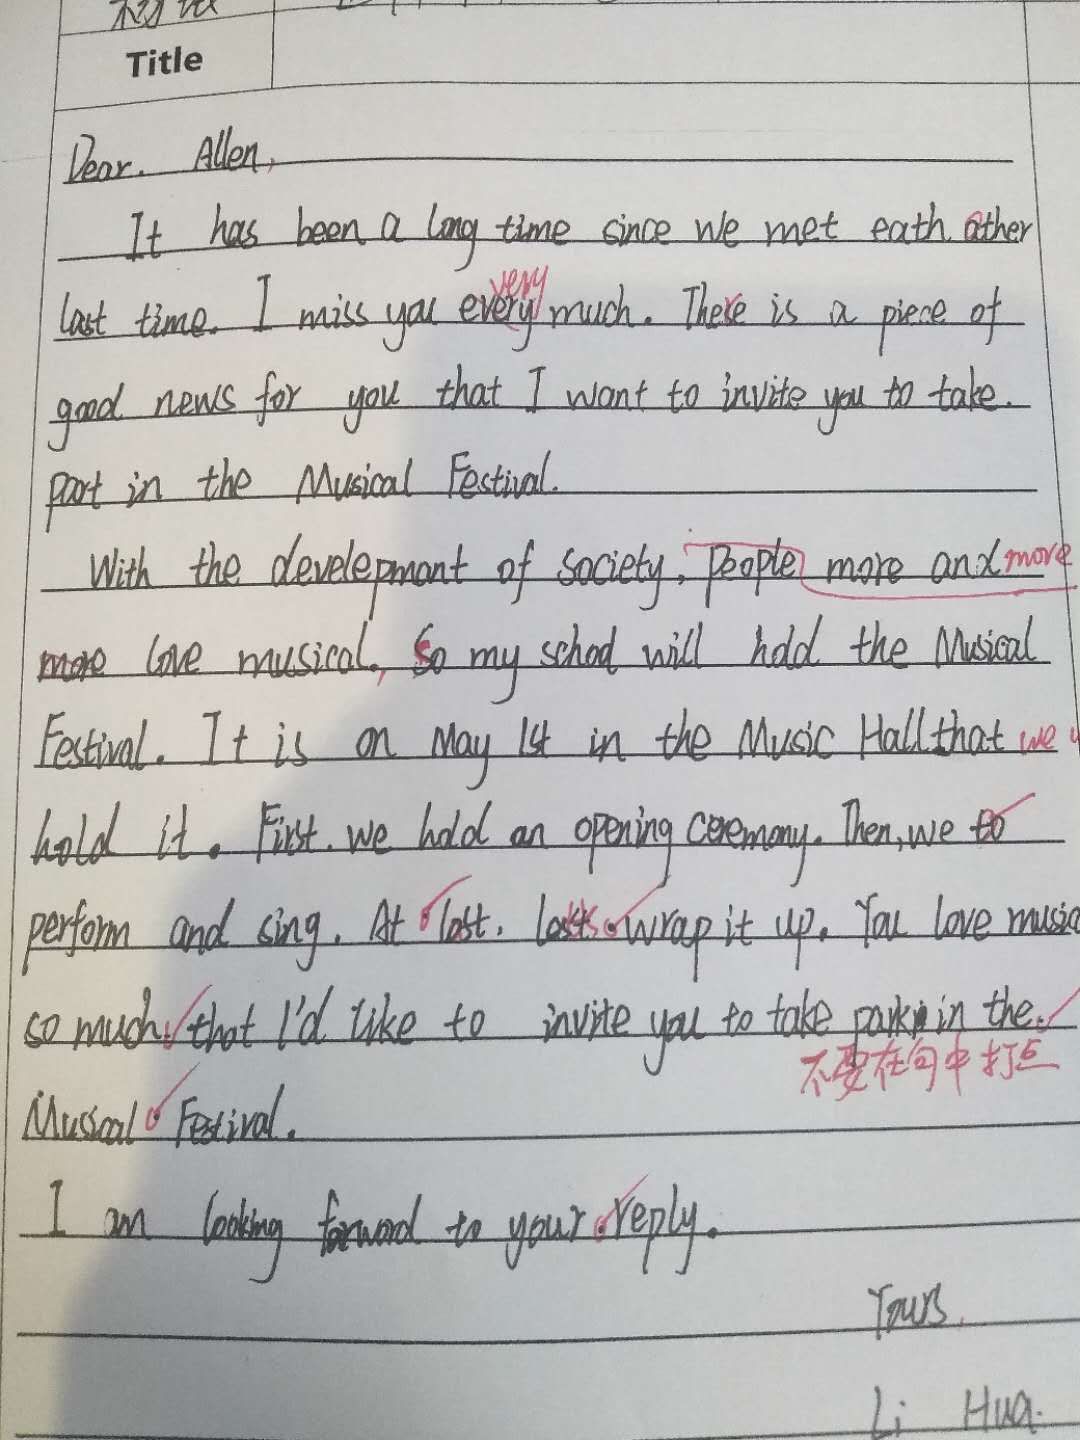 初
Title
Dear. Allen,
It has been a long time since we met eath other
very
last time. I miss you every much. There is a piece of
good news for you that I want to invite you to take.
part in the Musical Festival.
With the develepmant of society. people more and more
more love musical., So my school will hold the Musical
Festival. It is on May 1st in the Music Hall that we
hold it. First. we hold an opening ceremony. Then, we to
perform and sing. At last. let's wrap it up. You love music
so much, that I'd like to invite you to take park in the.
不要在句中打点
Musical Festival.
I am looking forward to your reply.
Yours,
Li Hua.